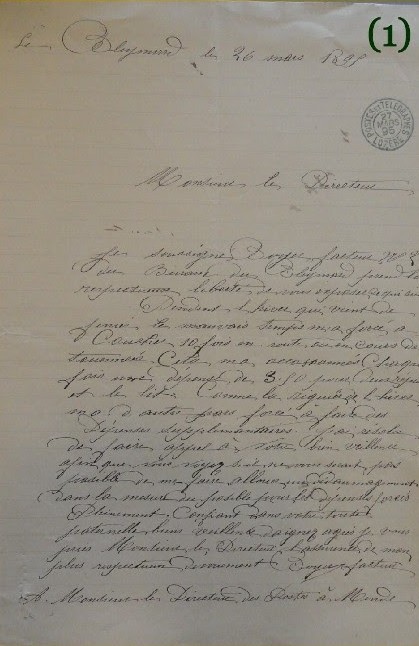 (1)
Le Bleymard le 26 mars 1895
POSTES ET TELEGRAPHES
27 MARS 95
LOZERE
Monsieur le Directeur
Je soussigné Boyer facteur
du Bureau du Bleymard prend la
respectueuse liberté de vous exposer ce qui suit
Pendant l'hiver qui vient de
le mauvais temps m'a forcé à
Coucher 10 fois en route au cours de
tournées Cela m'a occasionné Chaque
fois une dépense de 3f50 pour
et le lit. Comme la rigueur de l'hiver
m'a d'autre part forcé à faire des
Dépenses Supplémentaires j'ai résolu
de faire appel à Votre bien veillance
afin que vous voyez s'il ne vous serait pas
possible de me faire allouer un dédommagement
dans la mesure du possible pour les dépenses
Pleinement Confiant dans votre toute
paternelle bien veillance daignez agréer je vous
prie Monsieur le Directeur l'assurance de mon
plus respectueux dévouement Boyer facteur
A Monsieur le Directeur des Postes à Mende